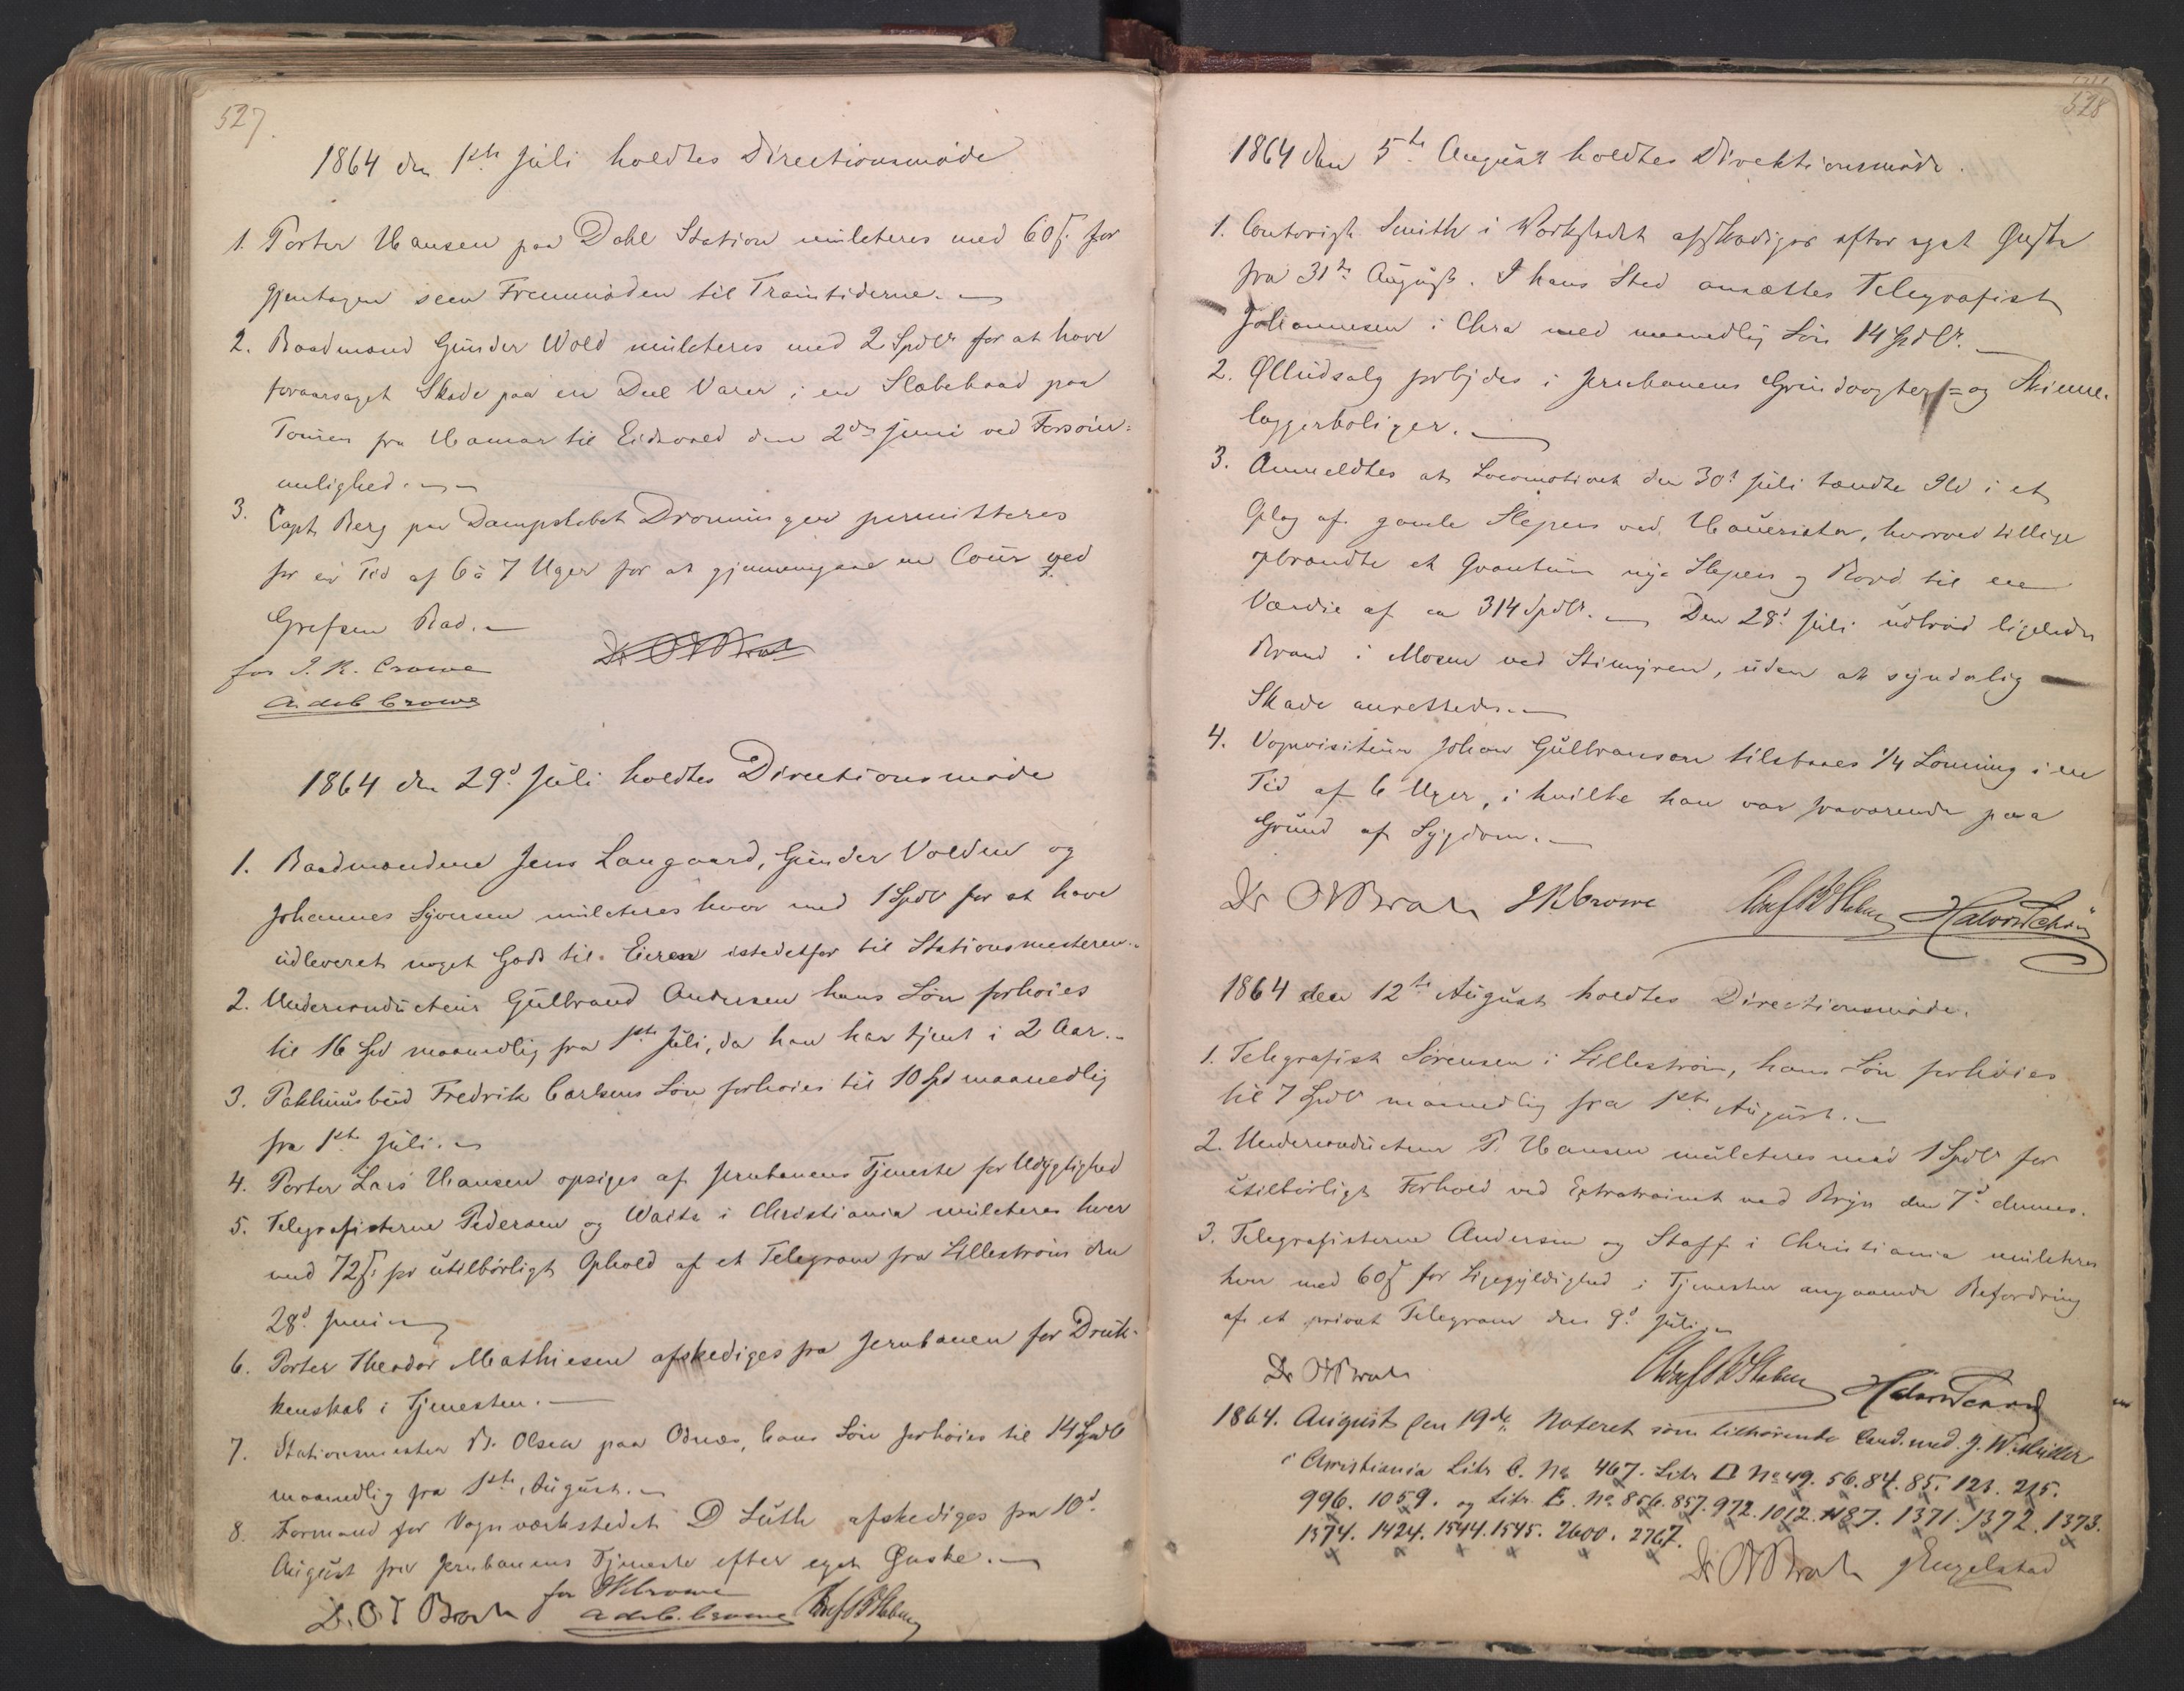 527.
1864 den 1ste Juli holdtes Directionsmøde
1. Porter Hansen paa Dahl Station mulcteres med 60 ß. for
gjentagen seen Fremmøden til Traintiderne.
2. Baadmand Gunder Wold mulcteres med 2 Spdlr for at have
foraarsaget Skade paa en Deel Varer i en Slæbebaad paa
Touren fra Hamar til Eidsvold den 2den Juni ved Forsøm-
melighed.
3. Capt Berg paa Dampskibet Dronningen permitteres
for en Tid af 6 à 7 Uger for at gjennemgaae en Cour ved
Grefsen Bad.
for J. R. Crowe
1864 den 29d Juli holdtes Directionsmøde
1. Baadmændene Jens Langaard, Gunder Volden og
Johannes Syversen mulcteres hver med 1 Spdlr for at have
udleveret noget Gods til Eieren istedetfor til Stationsmesteren.
2. Underconducteur Gulbrand Andersen hans Løn forhøies
til 16 Spd maanedlig fra 1ste Juli, da han har tjent i 2 Aar.
3. Pakhuusbud Fredrik Carlsens Løn forhøies til 10 Spd maanedlig
fra 1ste Juli.
4. Porter Lars Hansen opsiges af Jernbanens Tjeneste for Udygtighed
5. Telegrafisterne Pedersen og Waitz i Christiania mulcteres hver
med 72 ß. for utilbørligt Ophold af et Telegram fra Lillestrøm den
28d Juni
6. Porter Theodor Mathiesen afskediges fra Jernbanen for Druk-
kenskab i Tjenesten.
7. Stationsmester B. Olsen paa Odnæs, hans Løn forhøies til 14 Spdlr
maanedlig fra 1ste August.
8. Formand for Vognværkstedet D Luth afskediges fra 10d
August fra Jernbanens Tjeneste efter eget Ønske.
Dr. O T Broch for JRCrowe
528
1864 den 5te August holdtes Direktionsmøde.
1. Contorist Smith i Værkstedet afskediges efter eget Ønske
fra 31te August. I hans Sted ansættes Telegrafist
Johannesen i Chra med maanedlig Løn 14 Spdlr.
2. Ølludsalg forbydes i Jernbanens Grindvogter- og Skinne-
læggerboliger.
3. Anmeldtes at Locomotivet den 30d Juli tændte Ild i et
Oplag af gamle Slepers ved Hauerseter, hvorved tillige
opbrændte et Qvantum nye Slepers og Bord til en
Værdie af ca 314 Spdlr. Den 28d Juli udbrød ligeledes
Brand i Mosen ved Stimyren, uden at synderlig
Skade anrettedes.
4. Vognvisiteur Johan Gulbransen tilstaaes 1/4 Lønning i en
Tid af 6 Uger, i hvilke han var fraværende paa
Grund af Sygdom.
Dr OTBroch JRCrowe
1864 den 12te August holdtes Directionsmøde.
1. Telegrafist Sørensen i Lillestrøm, hans Løn forhøies
til 7 Spdlr maanedlig fra 1ste August.
2. Underconducteur P. Hansen mulcteres med 1 Spdlr for
utilbørligt Forhold ved Extratrainet ved Bryn den 7d dennes.
3. Telegrafisterne Andersen og Staff i Christiania mulcteres
hver med 60 ß for Ligegyldighed i Tjenesten angaaende Befordring
af et privat Telegram den 9d Juli.
Dr OTBroch
1864. August den 19de Noteret som tilhørende Cand. med. J. W. Müller
i Christiania Litr C. No 467. Litr D No 49. 56. 84. 85. 123. 215.
996. 1059. og Litr. E. No 856. 857. 972. 1012. 1187. 1371. 1372. 1373.
1374. 1424. 1544. 1545. 2600. 2767.
Dr OTBroch Engelstad